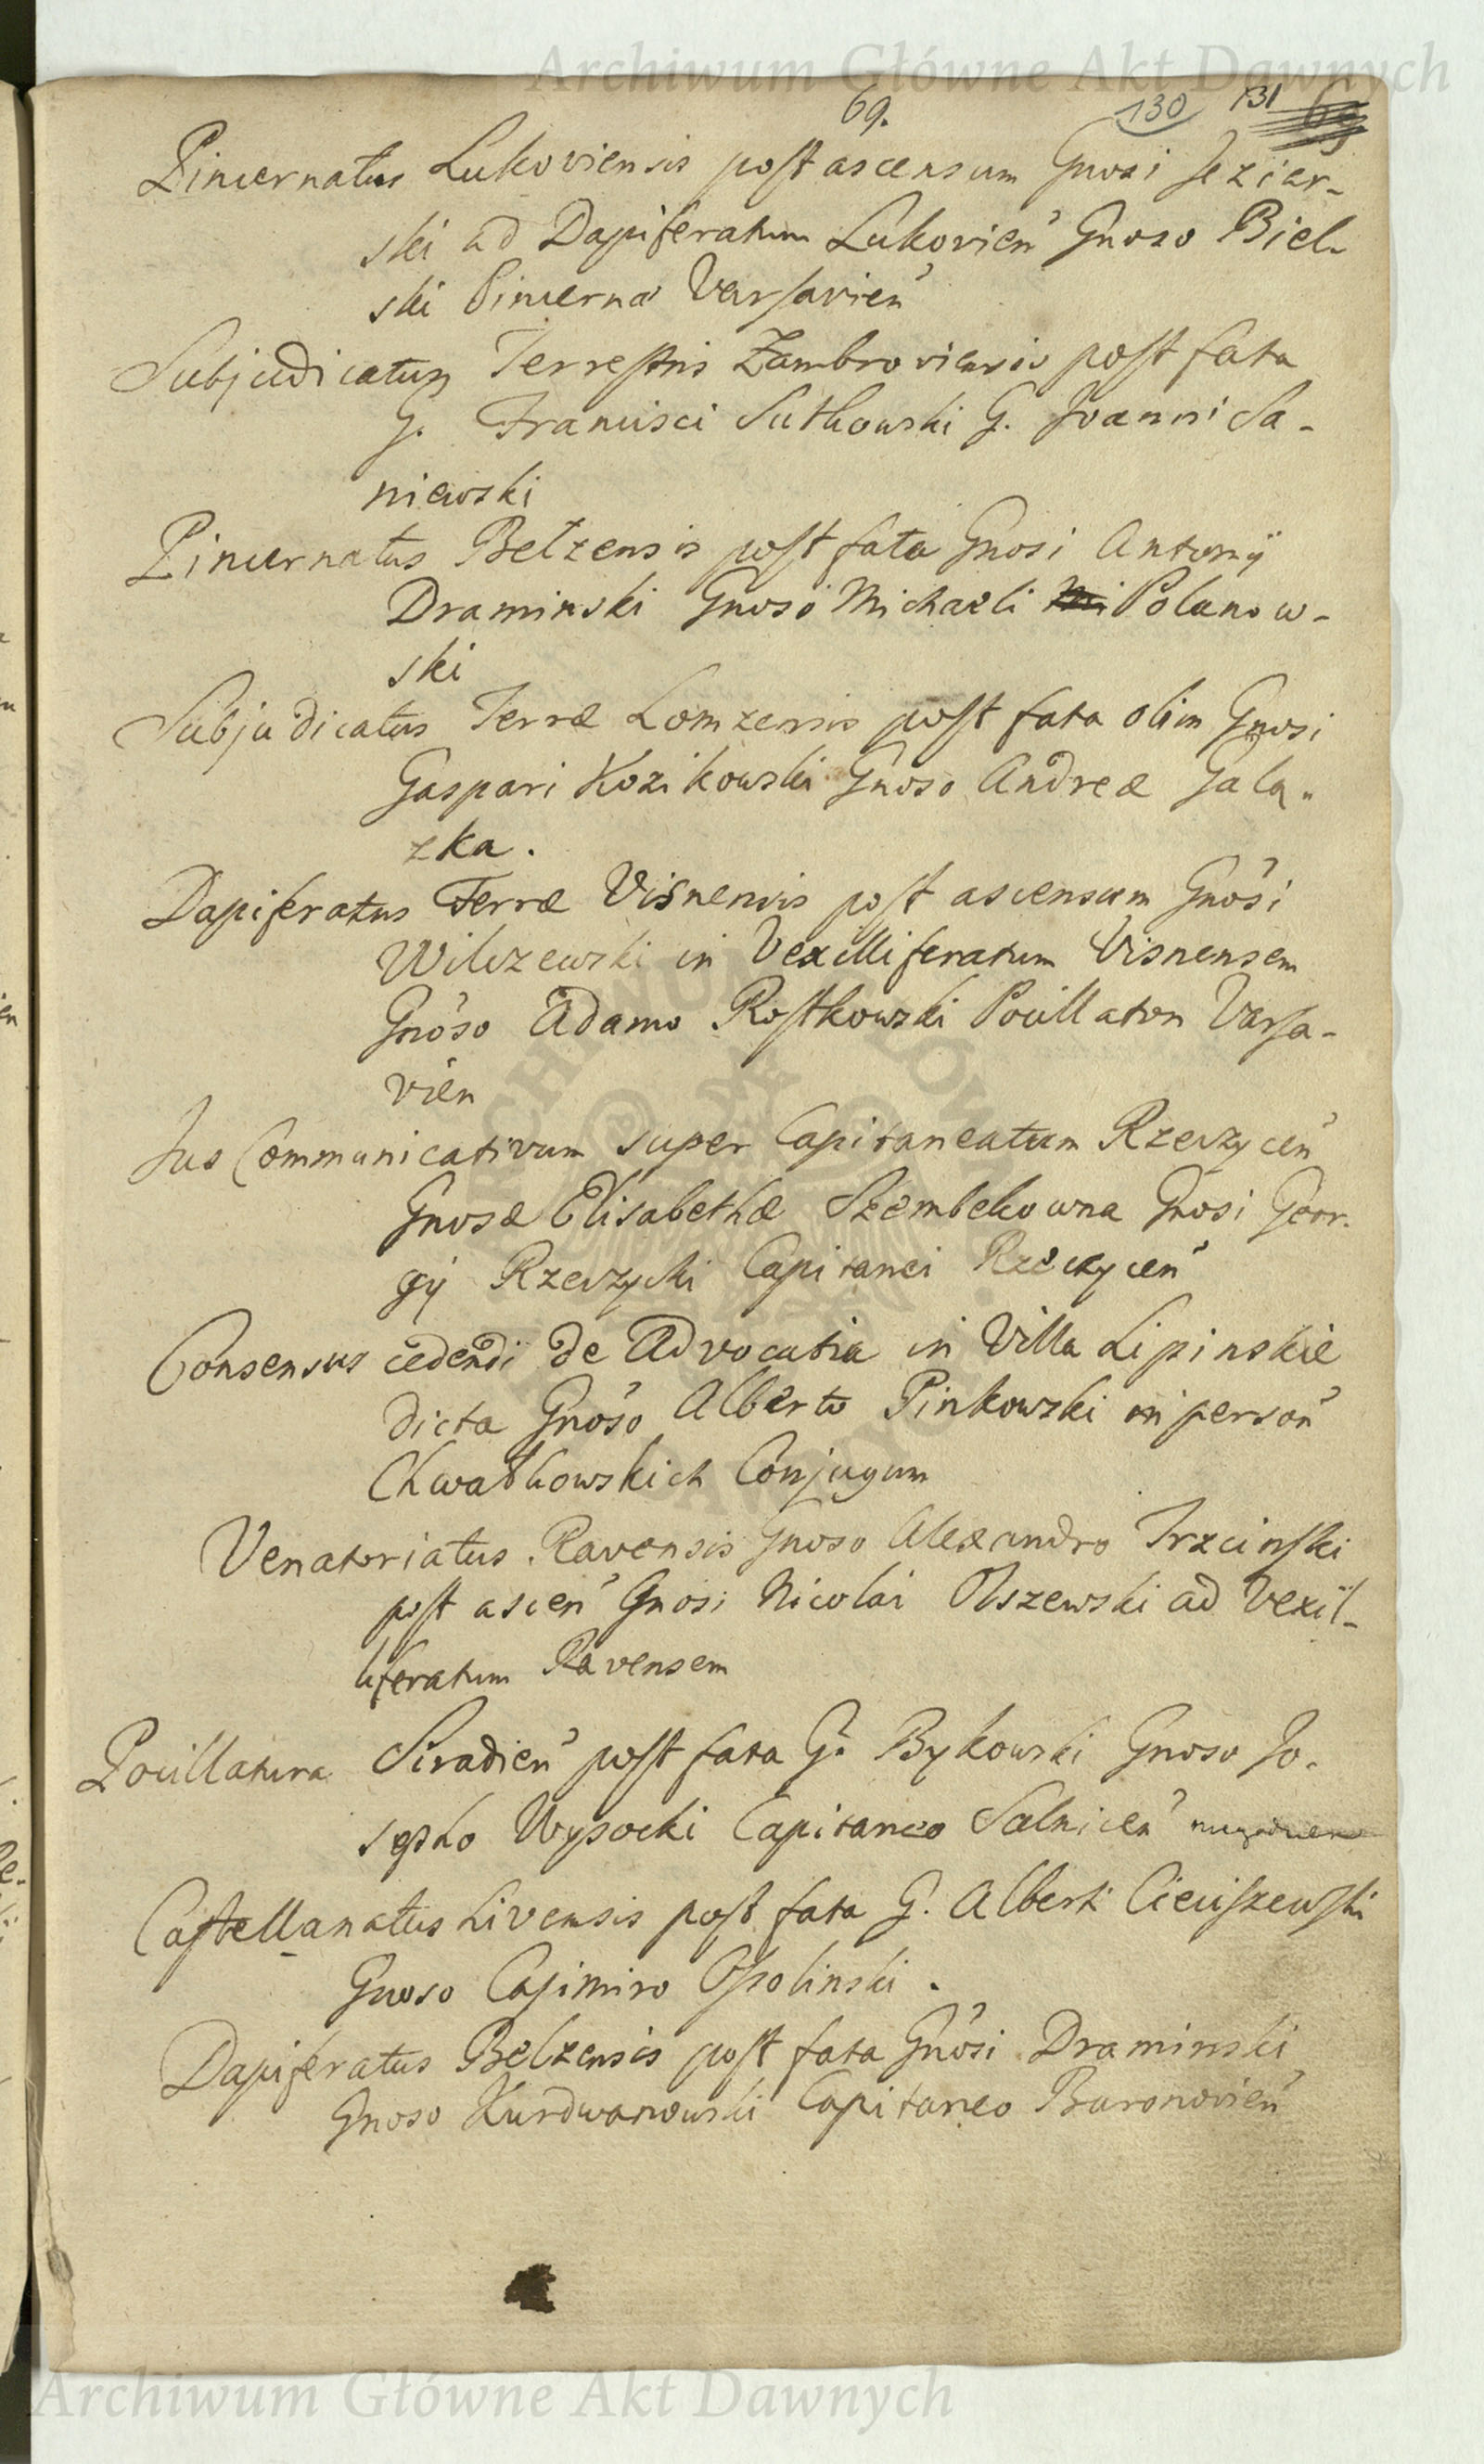 Archiwum Główne Akt Dawnych
69. 130 131
Pincernatus Lukoviensis post ascensum Gnosi Jezier-
ski ad Dapiferatum Lukovien Gnoso Biel-
ski Pincerna Varsavien
Subjudicatum Terrestris Zambroviensis post fata
G. Francisci Sutkowski G. Joanni Sa-
niewski
Pincernatus Belzensis post fata Gnosi Antonij
Draminski Gnoso Michaeli Polanow-
ski
Subjudicatus Terræ Lomzensis post fata olim Gnosi
Gaspari Kozikowski Gnoso Andreæ Gala-
zka.
Dapiferatus Terræ Visnensis post ascensum Gnosi
Wilczewski in Vexilliferatum Visnensem
Gnoso Adamo Rostkowski Pocillatori Varsa-
vien
Jus Communicativum super Capitaneatum Rzeczycen
Gnosæ Elisabethæ Szembekowna Gnosi Geor-
gij Rzeczycki Capitanei Rzeczycen
Consensus cedendi de Advocatia in Villa Lipinskie
dicta Gnoso Alberto Pinkowski in person
Chwatkowskich Conjugum
Venatoriatus Ravensis Gnoso Alexandro Trzcinski
post ascen Gnosi Nicolai Olszewski ad Vexil-
liferatum Ravensem
Pocillatura Siradien post fata G. Bykowski Gnoso Jo-
sepho Wysocki Capitaneo Salnicen
Castellanatus Livensis post fata G. Alberti Cieciszewski
Gnoso Casimiro Ossolinski.
Dapiferatus Belzensis post fata Gnosi Draminski
Gnoso Kurdwanowski Capitaneo Baronovien
Archiwum Główne Akt Dawnych